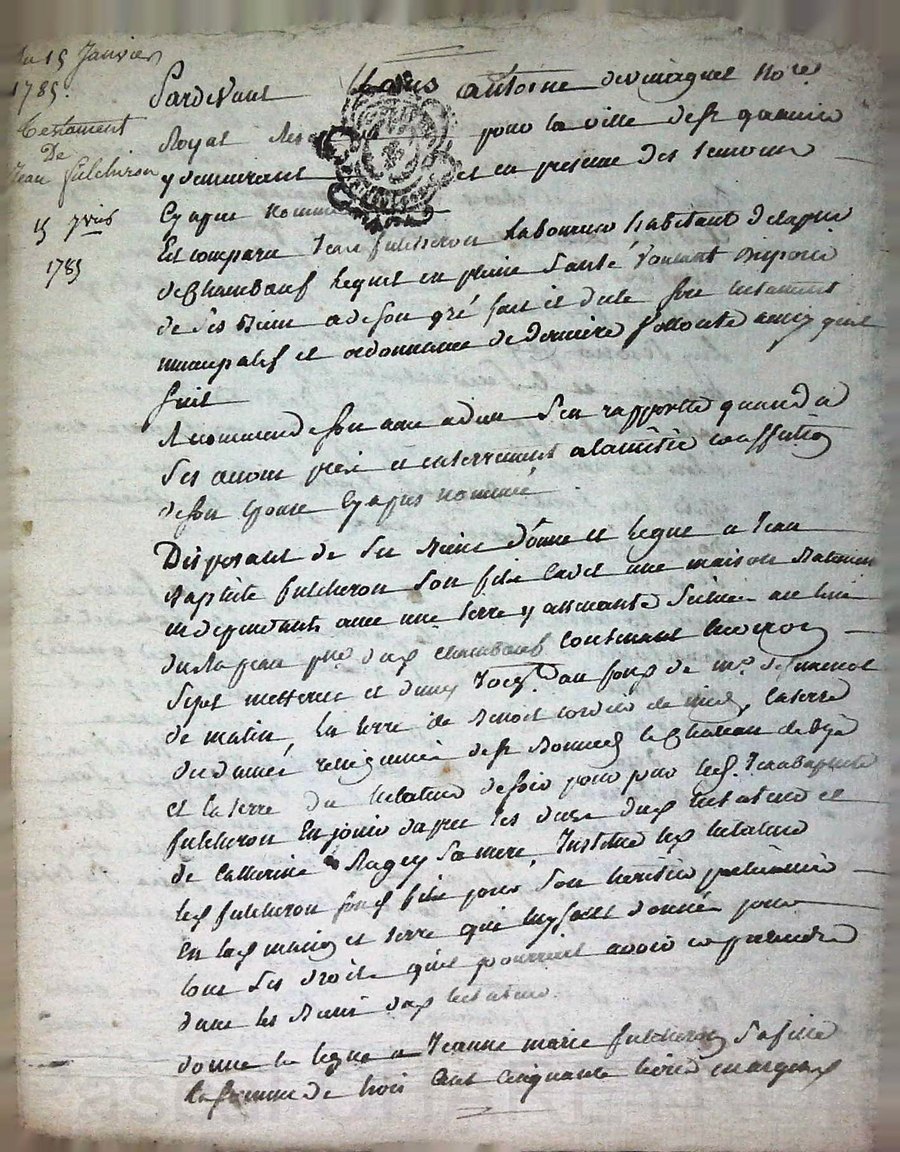 Du 15 Janvier
1785.
Testament
De
Jean fulcheron
15 Jvier
1785
Pardevant Nous antoine devinagues No.re
Royal pour la ville de St galmier
y demeurant et en presence des temoins
Cy apres nommé
Est comparu Jean fulcheron Laboureur habitant de la psse
de Chambœuf Lequel en pleine Santé Voulant Disposer
de ses Biens a de son gré fait et dicté son testament
nuncupatif et ordonnance de Derniere Vollonté ainsy quil
Suit
Recommende son ame a dieu S'en rapporte quand a
Ses œuvres pies et enterrement a la
de son Epouse Cy apres nommée
Disposant de ses Biens donne et legue a Jean
Baptiste fulcheron Son fils Cadet une maison Batiments
independants avec une terre y attenante Scituée au lieu
de psse dud chambœuf Contenant Environ
Sept metterées et demy Joig.t au fonds de mr
de matin, La terre de Benoit cordier de midy, la terre
des dames religieuses de St Bonnet le Chateau de bize
et la terre du testateur de soir pour par led. Jean Baptiste
fulcheron En jouir dapres les deces dud testateur et
de Catherine Ragey Sa mere, Institue led testateur
led fulcheron sond fils pour Son heritier particulier
En lad maison et terre qui luy sont donnés pour
tous Ses droits quil pourroit avoir et pretendre
dans les Biens dud testateur.
donne et legue a Jeanne marie fulcheron Sa fille
la somme de trois Cent Cinquante livres